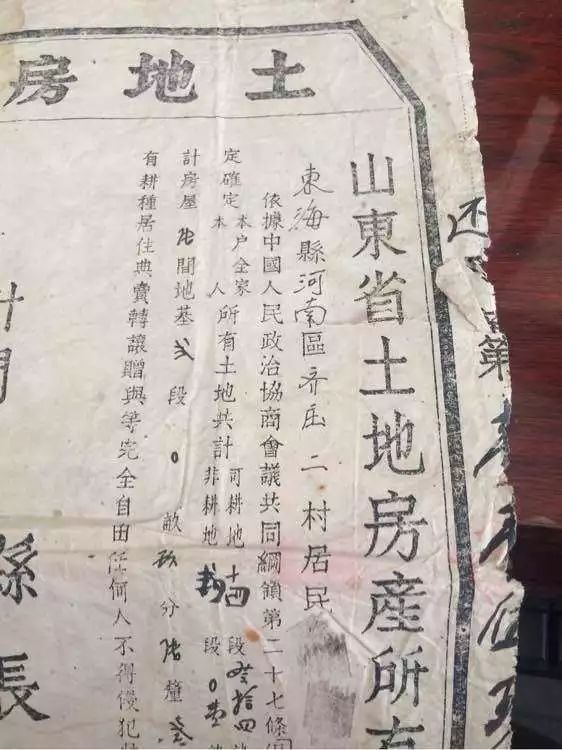 土地房
第
山東省土地房産所有
東海縣河南區齐庄二村居民
依據中國人民政治協商會議共同綱領第二十七條
定確定本户全家本人所有土地共計可耕地十四段叁拾四非耕地段0壹
計房屋間地基弍段0畝玖分陆釐叁
有耕種居住典賣轉讓贈與等完全自由任何人不得侵犯
計開
縣長